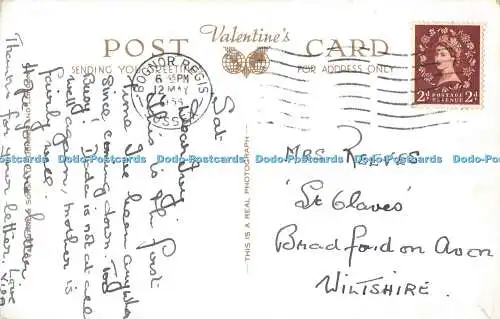 Valentine's
POST CARD
SENDING YOUR GREETING
FOR ADDRESS ONLY
BOGNOR REGIS
6 PM
12 MAY
SUSSEX
2d POSTAGE REVENUE 2d
THIS IS A REAL PHOTOGRAPH
Sat
This is the first
time I've been anywhere
since coming down. Too
Busy! Dada is not at all
well again, mother is
fairly well.
Hope you are better
Thanks for your letter. Love
Mrs
'St Olaves'
Bradford on Avon
WILTSHIRE.
Dodo-Postcards Dodo-Postcards Dodo-Postcards Dodo-Postcards Dodo-Postcards Dodo-Postcards